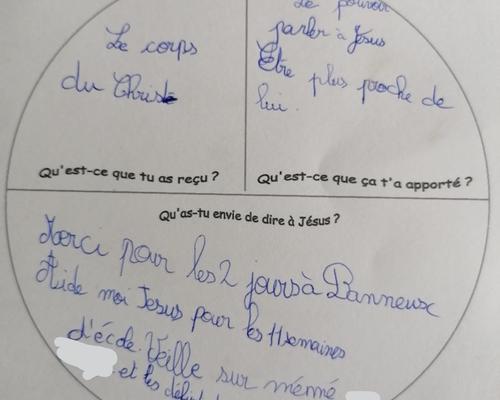 Le corps
du Christ
Qu'est-ce que tu as reçu ?
Le pouvoir
parler à Jésus
Être plus proche de
lui.
Qu'est-ce que ça t'a apporté ?
Qu'as-tu envie de dire à Jésus ?
Merci pour les 2 jours à Banneux
Aide moi Jesus pour les 11 semaines
d'école. Veille sur mémé
et les